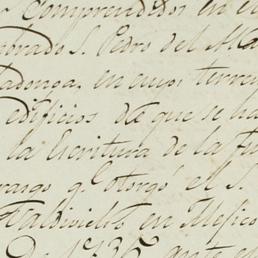 comprendidos en el
brado S. Pedro del Ala
adonga, en cuyo terre
edificios de que se ha
la Escritura de la fu
rargo q.e otorgó el S.
Valdivielso en Mexico